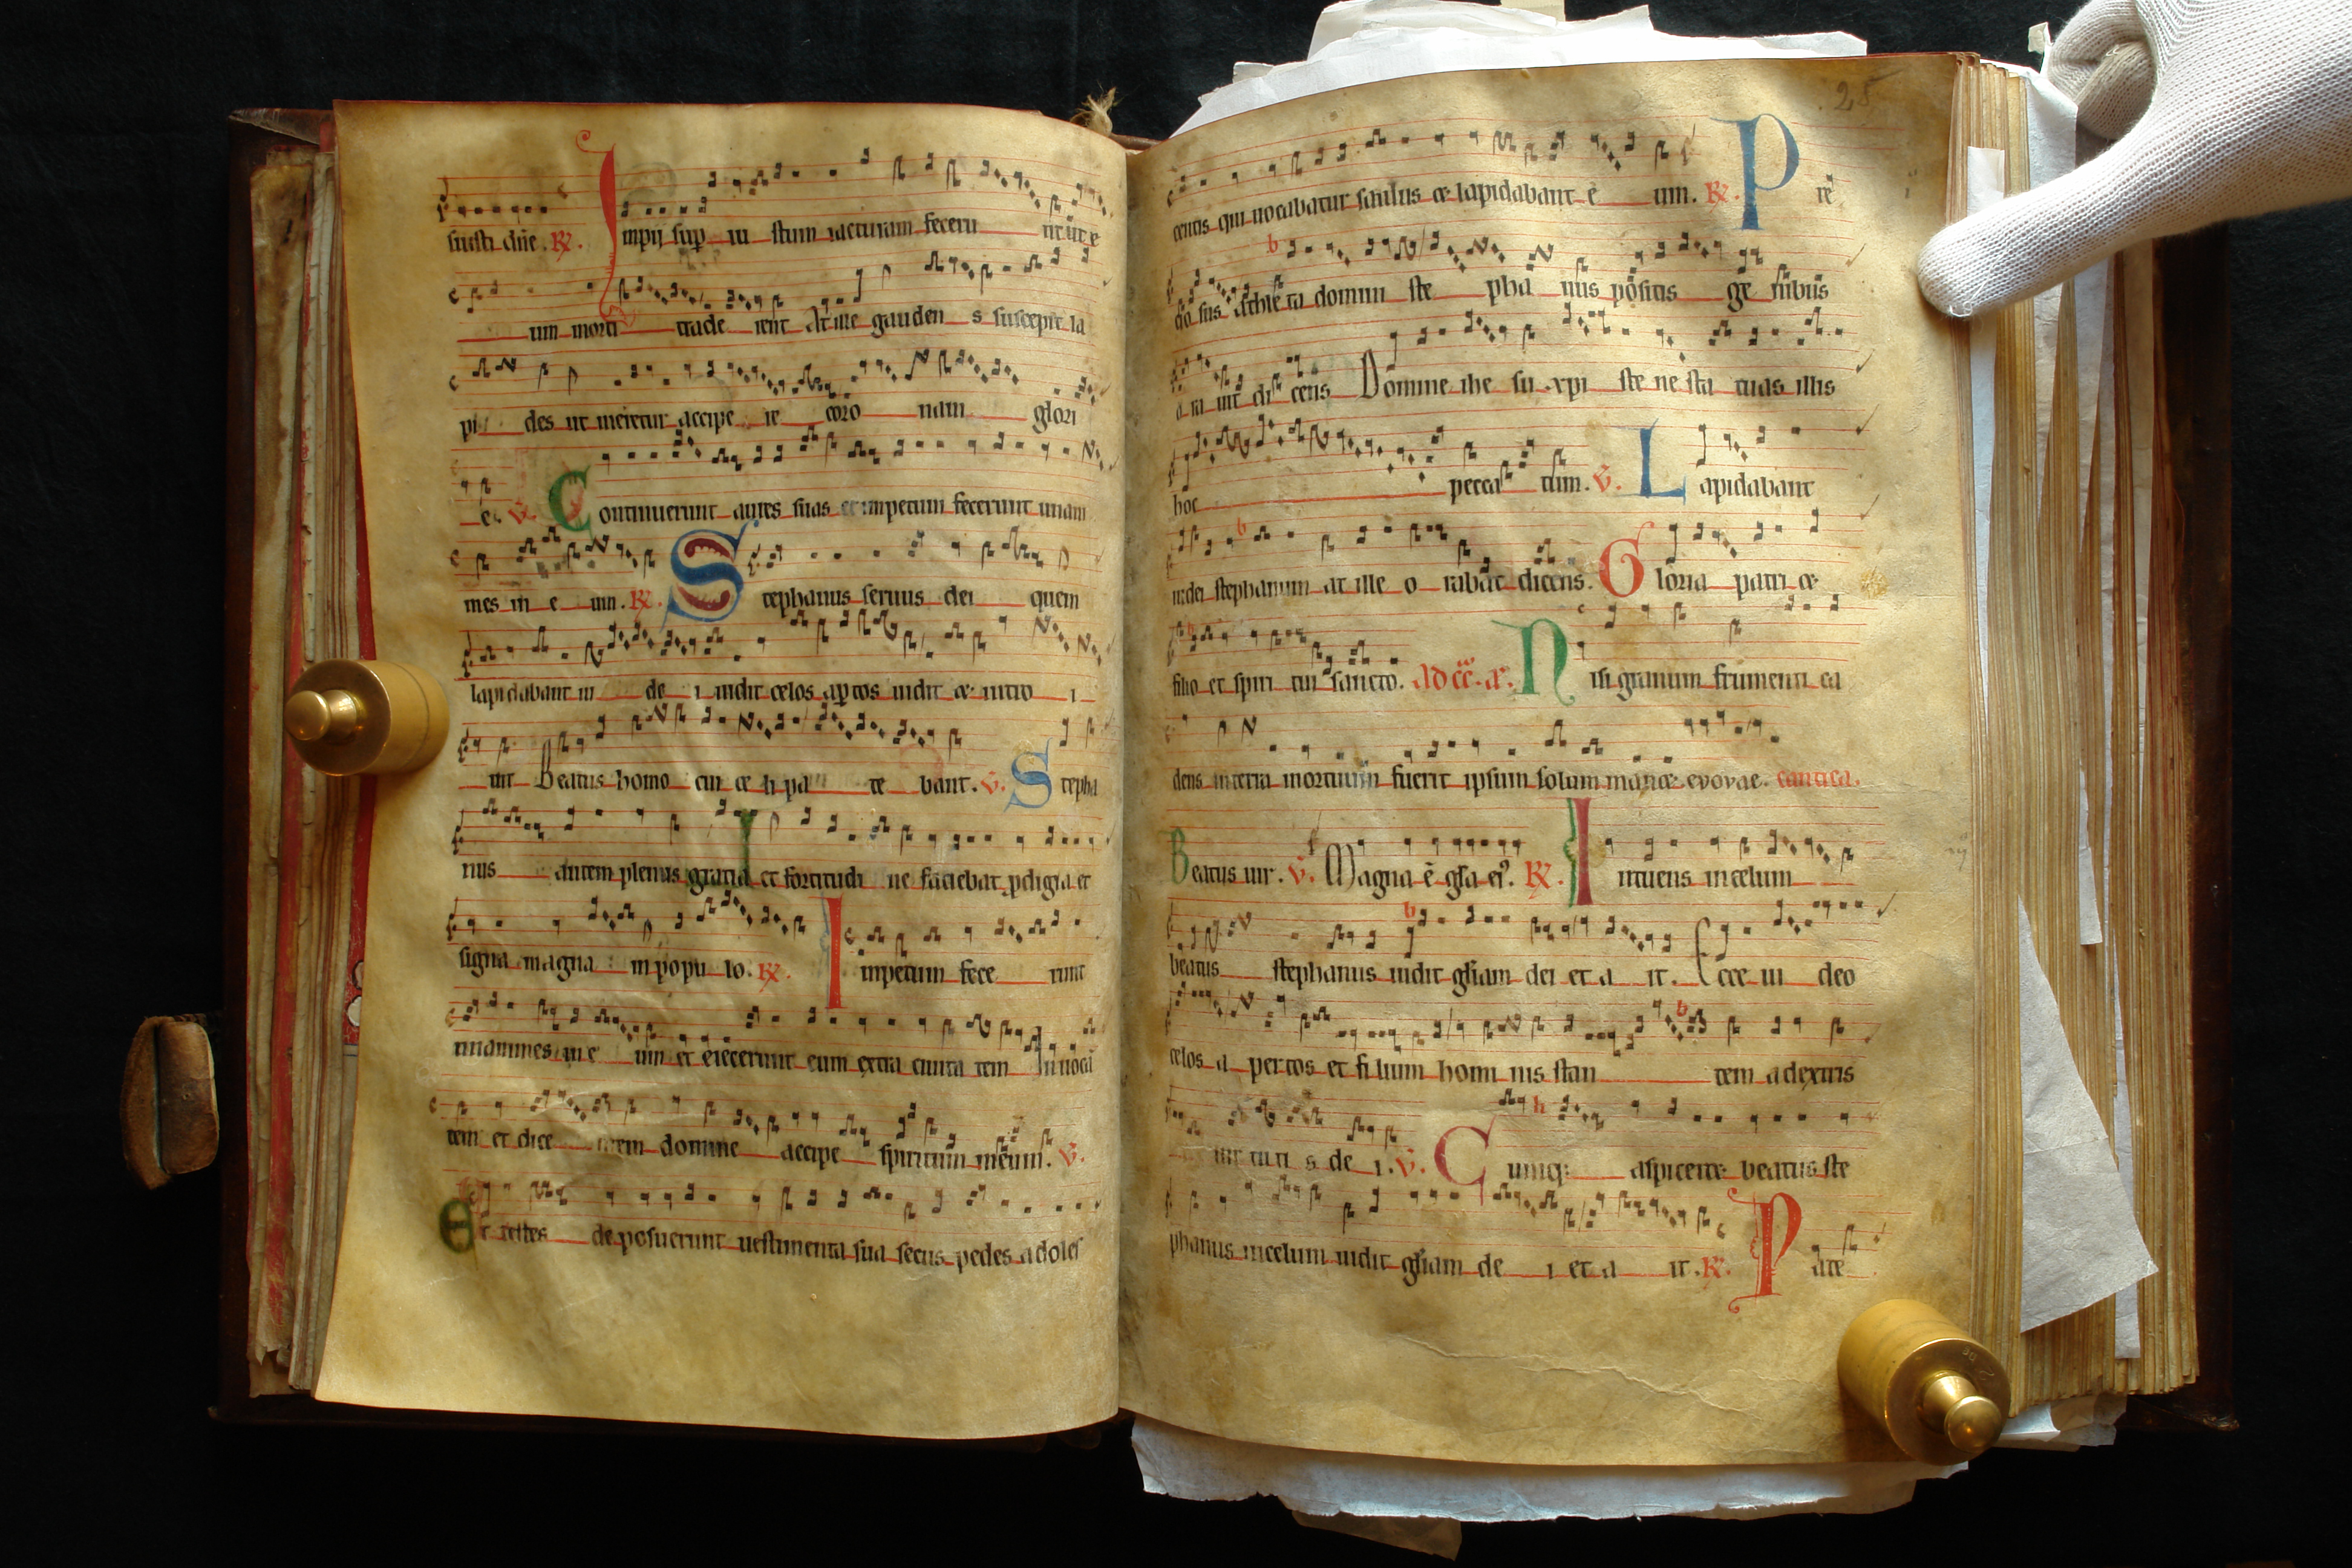 suisti dñe. R. Impij sup iu stum iacturam feceru nt ut e
um morti trade rent At ille gauden s suscepit la
pi des ut meretur accipe re coro nam glori
e. V. Continuerunt aures suas et impetum fecerunt unani
mes in e um. R. Stephanus seruus dei quem
lapidabant iu de i uidit celos aptos uidit et intro i
uit Beatus homo cui ce li pa te bant. V. Stepha
nus autem plenus gratia et fortitudi ne faciebat pdigia et
signa magna in popu lo. R. Impetum fece runt
unanimes in e um et eiecerunt eum extra ciuita tem Inuocan
tem et dice ntem domine accipe spiritum meum. V.
Et testes de posuerunt uestimenta sua secus pedes adoles
25
centis qui uocabatur saulus et lapidabant e um. R. Pre
cio sus athle ta domini ste pha nus positis ge nibus
o ra uit di cens Domine ihe su xpi ste ne sta tuas illis
hoc pecca tum. V. Lapidabant
stephanum at ille o rabat dicens. Gloria patri et
filio et spiri tui sancto. Nisi granum frumenti ca
dens in terra mortuum fuerit ipsum solum manet evovae. cantica.
Beatus uir. V. Magna ē gła ei9. R. Intuens in celum
beatus stephanus uidit głiam dei et a it. Ecce ui deo
celos a pertos et fi lium homi nis stan tem a dextris
uir tuti s de i. V. Cumq: aspiceret beatus ste
phanus in celum uidit głiam de i et a it. R. Pate